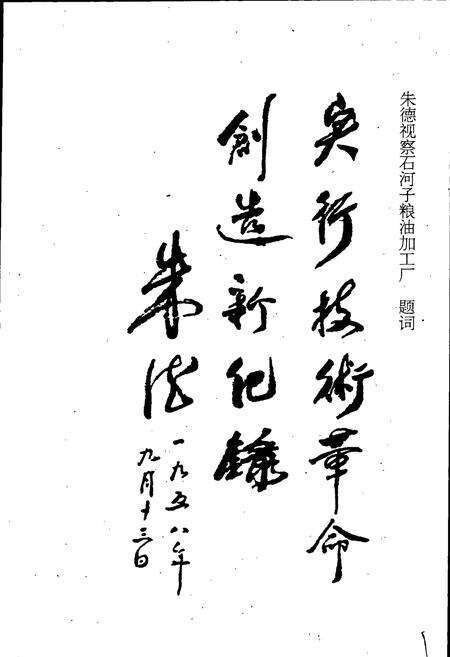 朱德视察石河子粮油加工厂 题词
实行技術革命
創造新纪錄
朱德
一九五八年
九月十三日